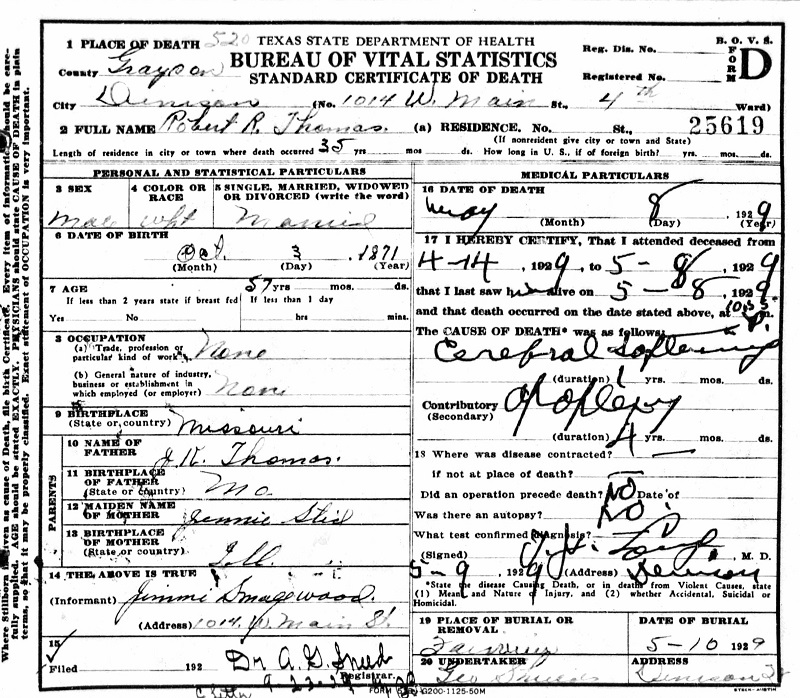 1 PLACE OF DEATH 520
TEXAS STATE DEPARTMENT OF HEALTH
BUREAU OF VITAL STATISTICS
STANDARD CERTIFICATE OF DEATH
B. O. V. S.
FORM D
Reg. Dis. No.
Registered No.
County Grayson
City Denison (No. 1014 W. Main St., 4th Ward)
2 FULL NAME Robert R. Thomas. (a) RESIDENCE. No. St., 25619
(If nonresident give city or town and State)
Length of residence in city or town where death occurred 35 yrs mos ds. How long in U. S., if of foreign birth? yrs. mos. ds.
PERSONAL AND STATISTICAL PARTICULARS
3 SEX
4 COLOR OR RACE
5 SINGLE, MARRIED, WIDOWED OR DIVORCED (write the word)
Married
6 DATE OF BIRTH
Oct. 3 1871
(Month) (Day) (Year)
7 AGE 57 yrs mos. ds.
If less than 2 years state if breast fed If less than 1 day
Yes No hrs mins.
8 OCCUPATION
(a) Trade, profession or
particular kind of work None
(b) General nature of industry,
business or establishment in
which employed (or employer) None
9 BIRTHPLACE
(State or country) Missouri
PARENTS
10 NAME OF
FATHER Thomas.
11 BIRTHPLACE
OF FATHER
(State or country) Mo.
12 MAIDEN NAME
OF MOTHER Jennie
13 BIRTHPLACE
OF MOTHER
(State or country) Ill.
14 THE ABOVE IS TRUE
(Informant) Jimmie Smallwood.
(Address) 1014 W Main St.
15
Filed 192 Dr. A. G. Sneed
Registrar.
MEDICAL PARTICULARS
16 DATE OF DEATH
May 8 1929
(Month) (Day) (Year)
17 I HEREBY CERTIFY, That I attended deceased from
4-14, 1929, to 5-8, 1929
that I last saw him alive on 5-8, 1929
and that death occurred on the date stated above, at 10.55 P. m.
The CAUSE OF DEATH* was as follows:
Cerebral softening
(duration) 1 yrs. mos. ds.
Contributory Apoplexy
(Secondary)
(duration) 4 yrs. mos. ds.
18 Where was disease contracted?
if not at place of death?
Did an operation precede death? NO Date of
Was there an autopsy? NO.
What test confirmed diagnosis?
(Signed) M. D.
5-9 1929 (Address) Denison
*State the disease Causing Death, or in deaths from Violent Causes, state
(1) Means and Nature of Injury, and (2) whether Accidental, Suicidal or
Homicidal.
19 PLACE OF BURIAL OR REMOVAL
DATE OF BURIAL
Fairview 5-10 1929
20 UNDERTAKER ADDRESS
Denison
FORM G200-1125-50M
STECK-AUSTIN